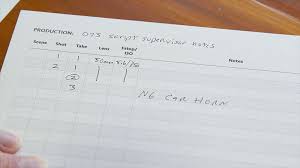 PRODUCTION: 093 script supervisor notes
Scene Shot Take Lens Fstop/ISO Notes
1 1 50mm 5.6/
2 1
2
3 NG CAR HORN